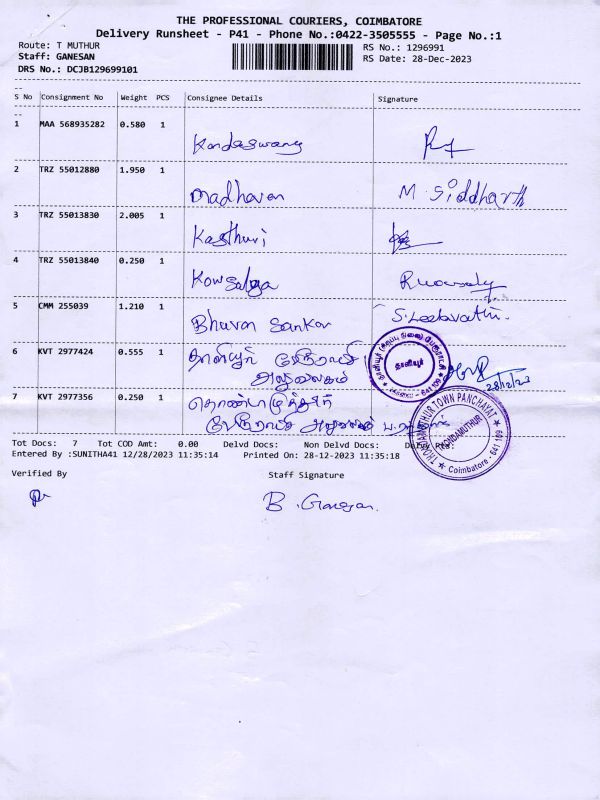 THE PROFESSIONAL COURIERS, COIMBATORE
Delivery Runsheet - P41 - Phone No.:0422-3505555 - Page No.:1
Route: T MUTHUR
RS No.: 1296991
Staff: GANESAN
RS Date: 28-Dec-2023
DRS No.: DCJB129699101
S No Consignment No Weight PCS Consignee Details Signature
1 MAA 568935282 0.580 1 Kandaswamy
2 TRZ 55012880 1.950 1 Madhavan M. Siddharth
3 TRZ 55013830 2.005 1 Kasthuri
4 TRZ 55013840 0.250 1 Kowsalya
5 CMM 255039 1.210 1 Bhuvan Sankar S. Leelavathi.
6 KVT 2977424 0.555 1 தாளியூர் பேரூராட்சி
அலுவலகம்
தாளியூர்
28/12/23
7 KVT 2977356 0.250 1 தொண்டாமுத்தூர்
பேரூராட்சி அலுவலகம்
THONDAMUTHUR TOWN PANCHAYAT
THONDAMUTHUR
Coimbatore - 641 109
Tot Docs: 7 Tot COD Amt: 0.00 Delvd Docs: Non Delvd Docs:
Entered By :SUNITHA41 12/28/2023 11:35:14 Printed On: 28-12-2023 11:35:18
Verified By Staff Signature
B. Ganesan.